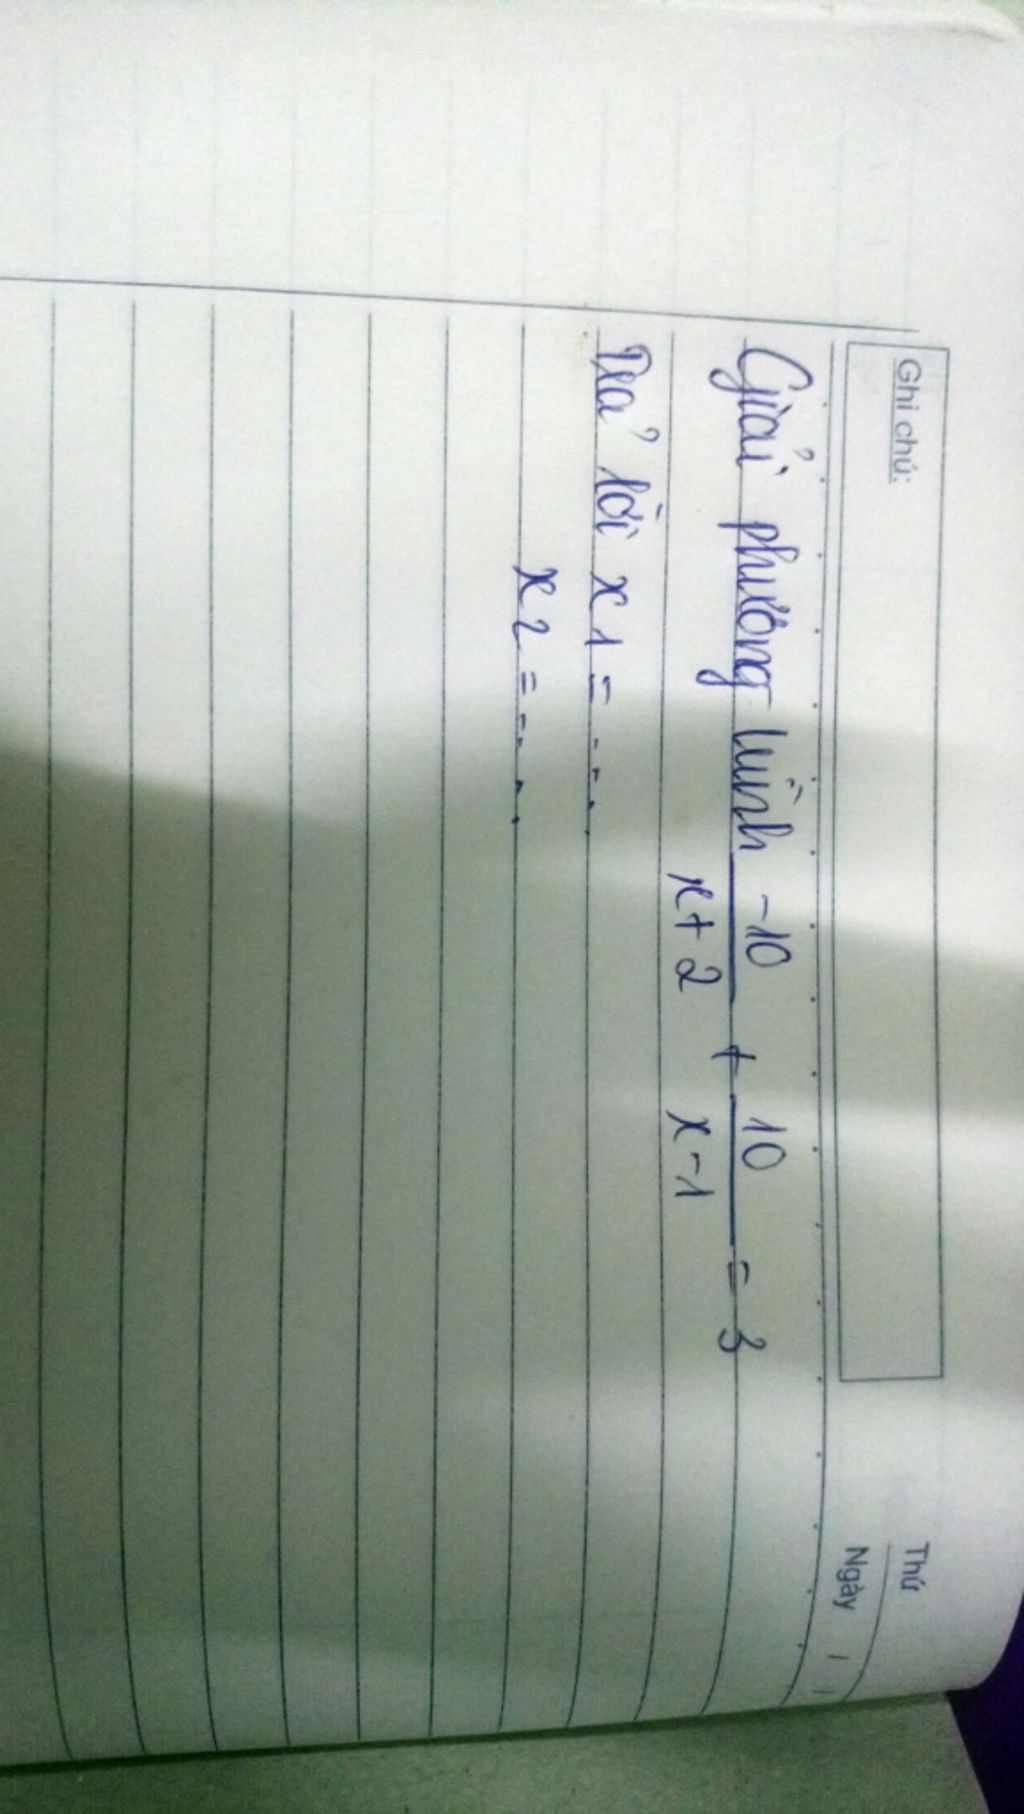 Ghi chú:
Thứ
Ngày / /
Giải phương trình -10/x+2 + 10/x-1 = 3
Trả lời x1 = .....
x2 = .....